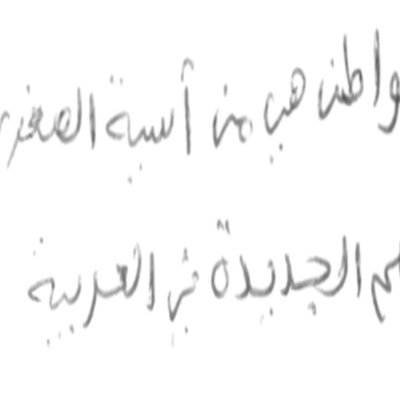 واطن هي من آسية الصغر
لم الجديدة في العربية